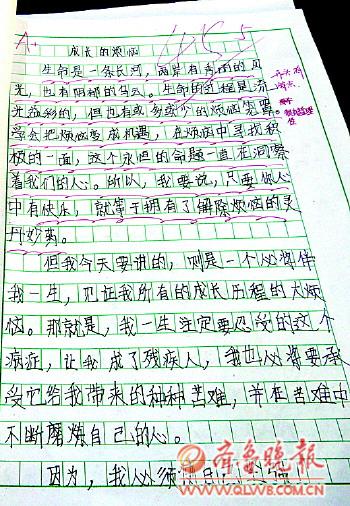 A+
成长的烦恼
生命是一条长河,两岸有秀丽的风
光,也有阴郁的乌云。生命的过程是流
光溢彩的,但也有或多或少的烦恼萦绕。
学会把烦恼变成机遇,在烦恼中寻找积
极的一面,这个永恒的命题一直在洞察
着我们的心。所以,我要说,只要你心
中有快乐,就等于拥有了解除烦恼的灵
丹妙药。
但我今天要讲的,则是一个必将伴
我一生,见证我所有的成长历程的大烦
恼。那就是,我一生注定要忍受的这个
病症,让我成了残疾人,我也必将要承
受它给我带来的种种苦难,并在苦难中
不断磨炼自己的心。
因为,我必须
齐鲁晚报
WWW.QLWB.COM.CN